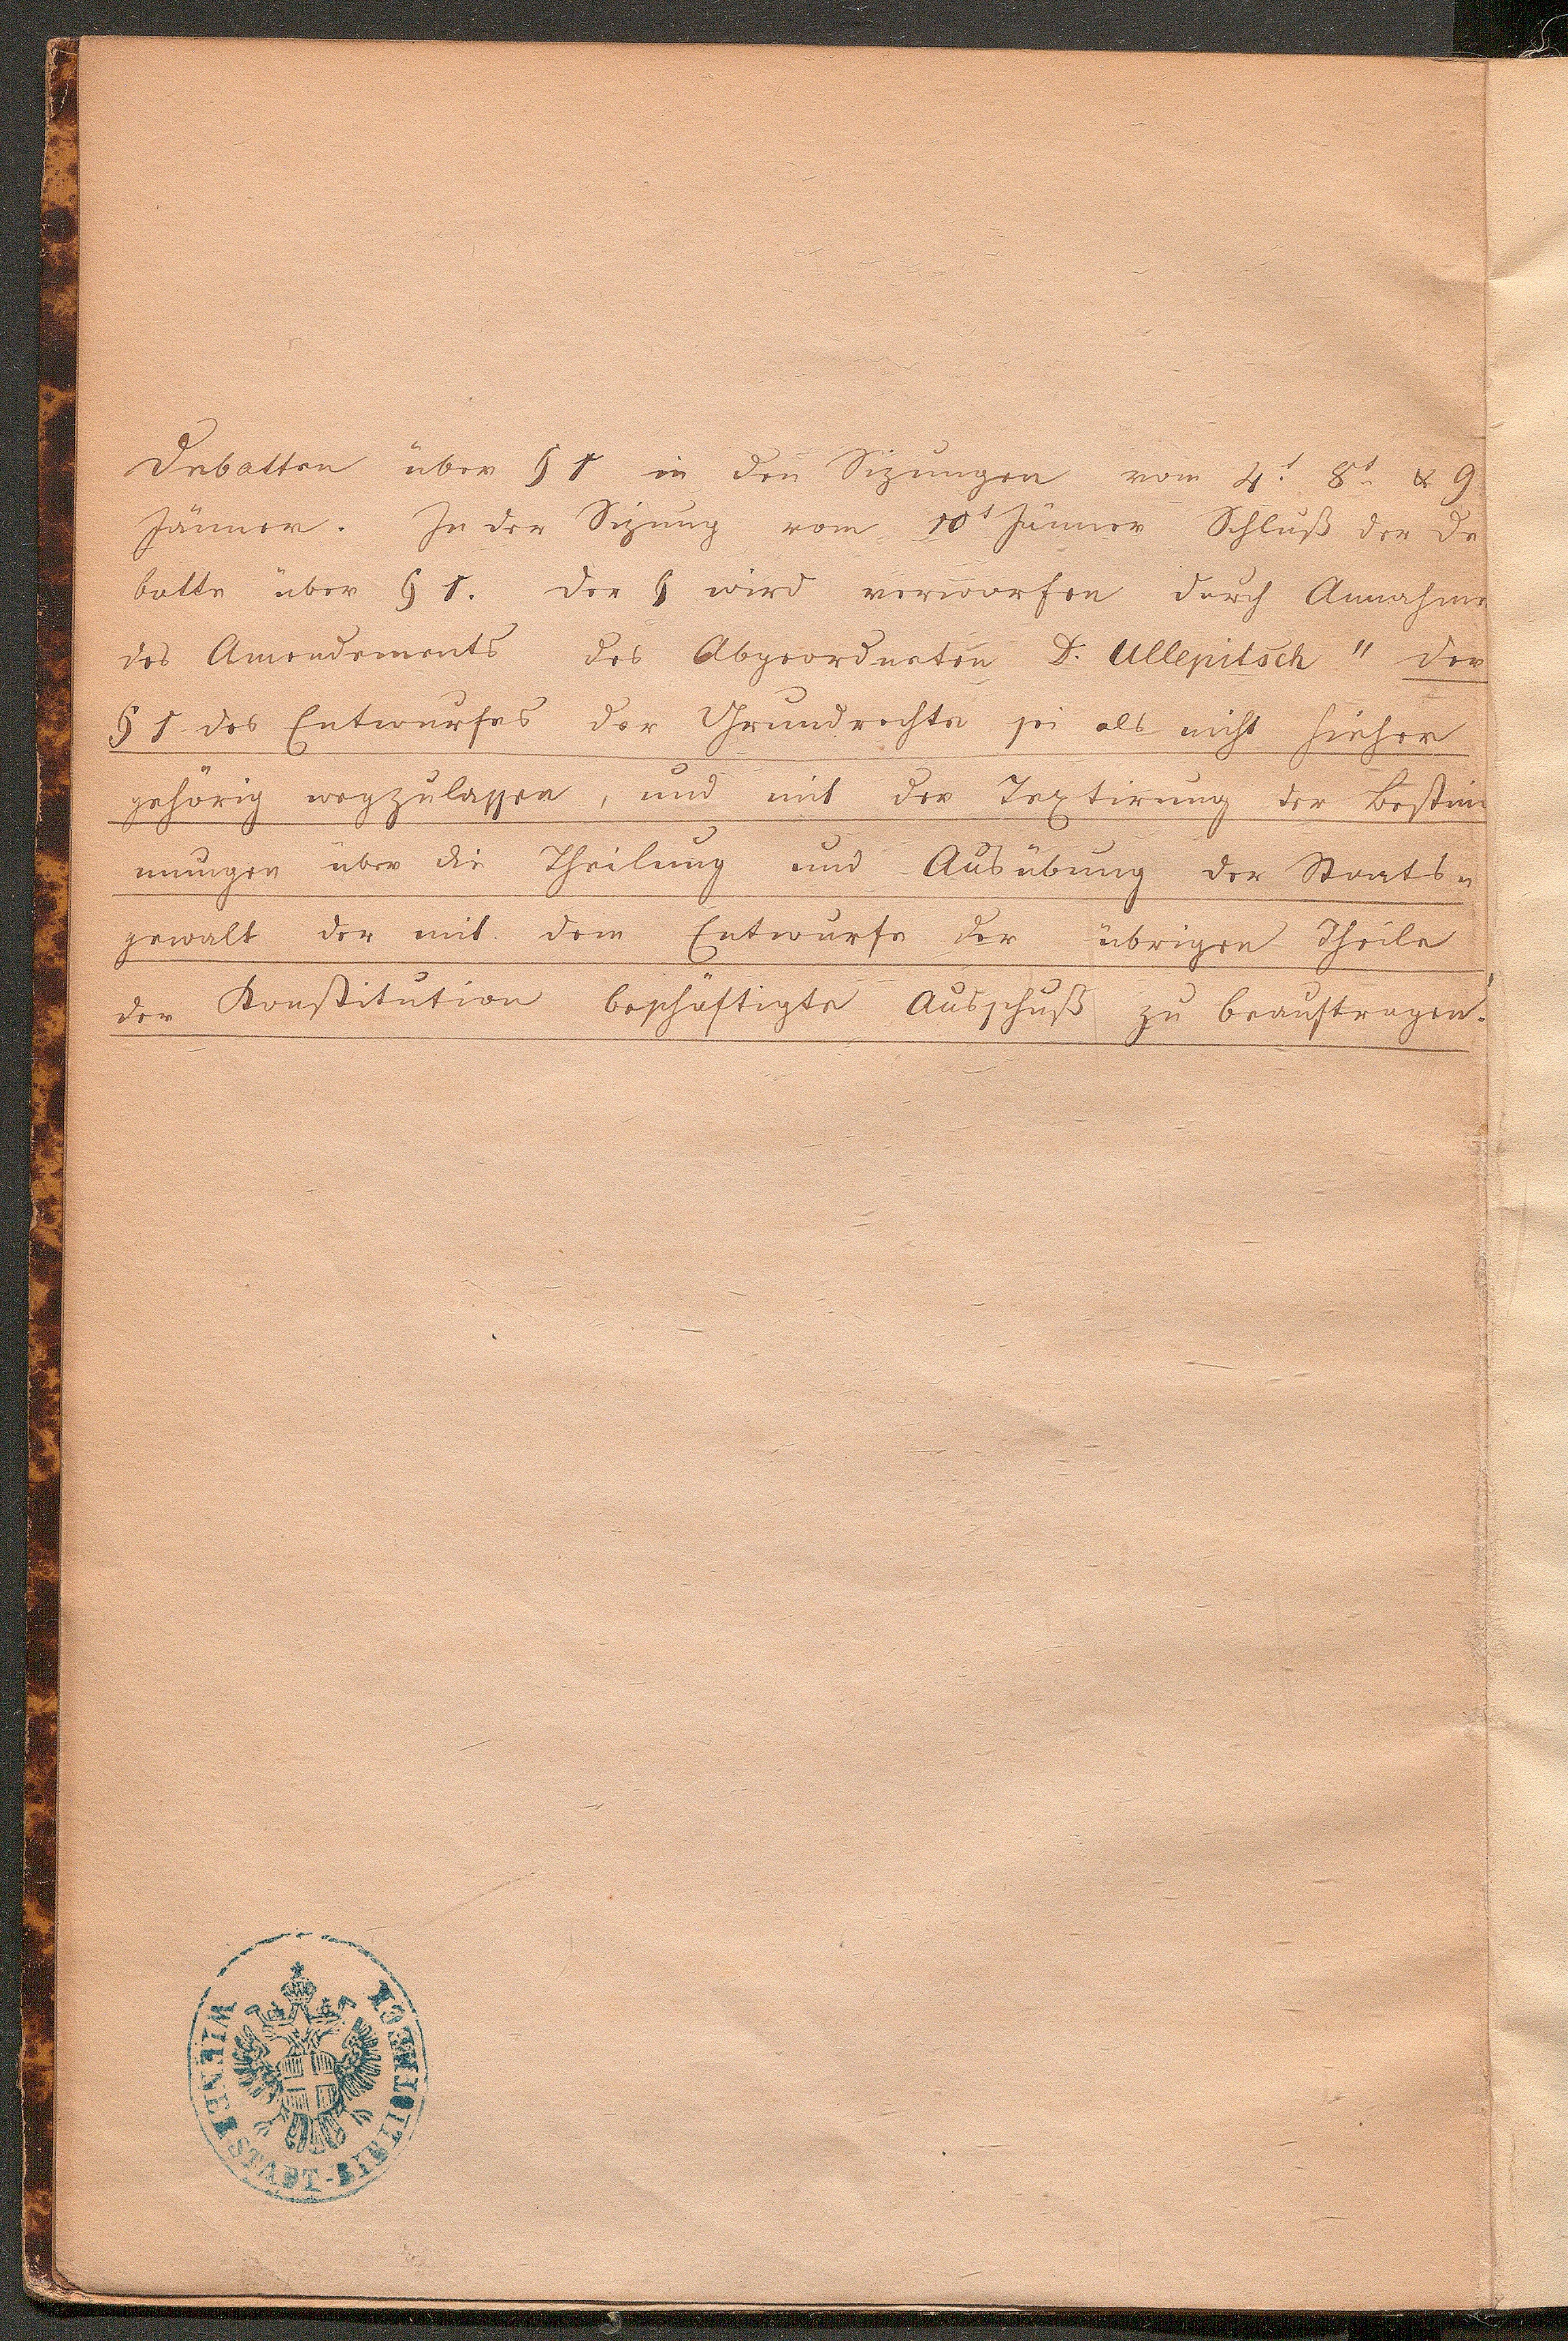 Debatten über § 1 in den Sizungen vom 4t. 8t. & 9
Jänner. In der Sizung vom 10t Jänner Schluß der De
batte über § 1. Der § wird verworfen durch Annahme
des Amendements des Abgeordneten D. Ullepitsch " der
§ 1 des Entwurfes der Grundrechte sei als nicht hieher
gehörig wegzulassen, und mit der Textirung der Bestim
mungen über die Theilung und Ausübung der Staats-
gewalt der mit dem Entwurfe der übrigen Theile
der Konstitution beschäftigte Ausschuß zu beauftragen."
WIENER STADT-BIBLIOTHEK